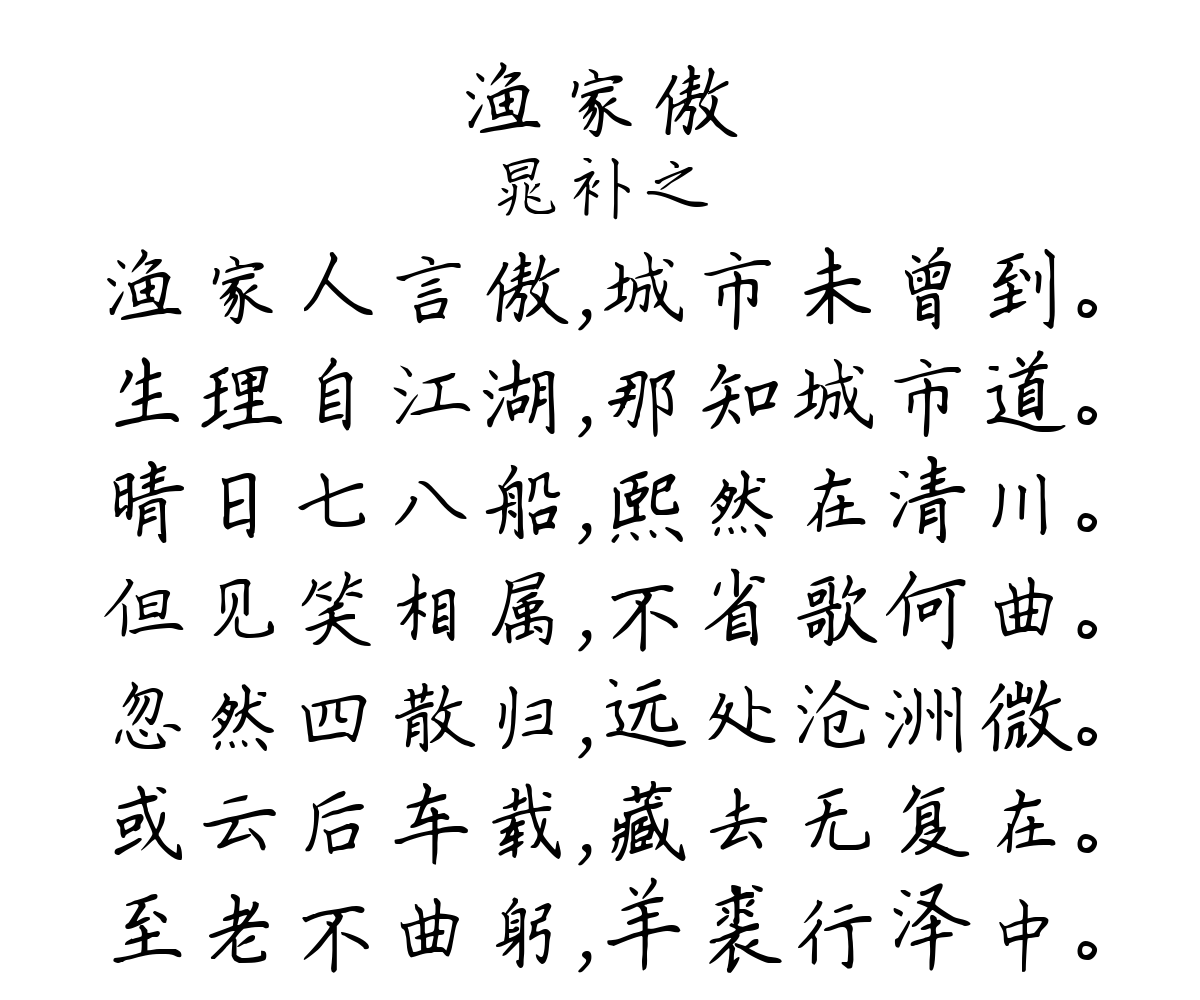 渔家傲
晁补之
渔家人言傲,城市未曾到。
生理自江湖,那知城市道。
晴日七八船,熙然在清川。
但见笑相属,不省歌何曲。
忽然四散归,远处沧洲微。
或云后车载,藏去无复在。
至老不曲躬,羊裘行泽中。